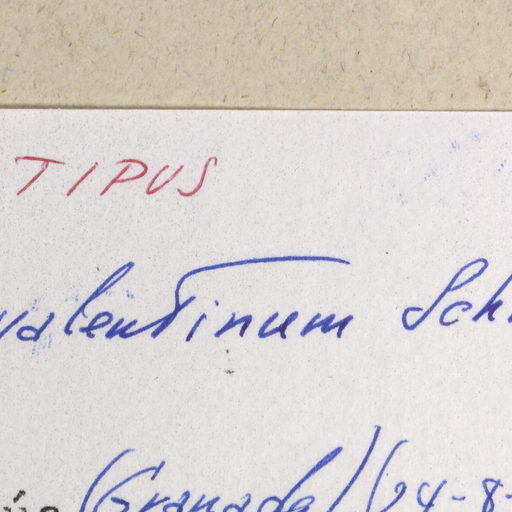 TIPUS
valentinum Sch
(Granada) (24-8-